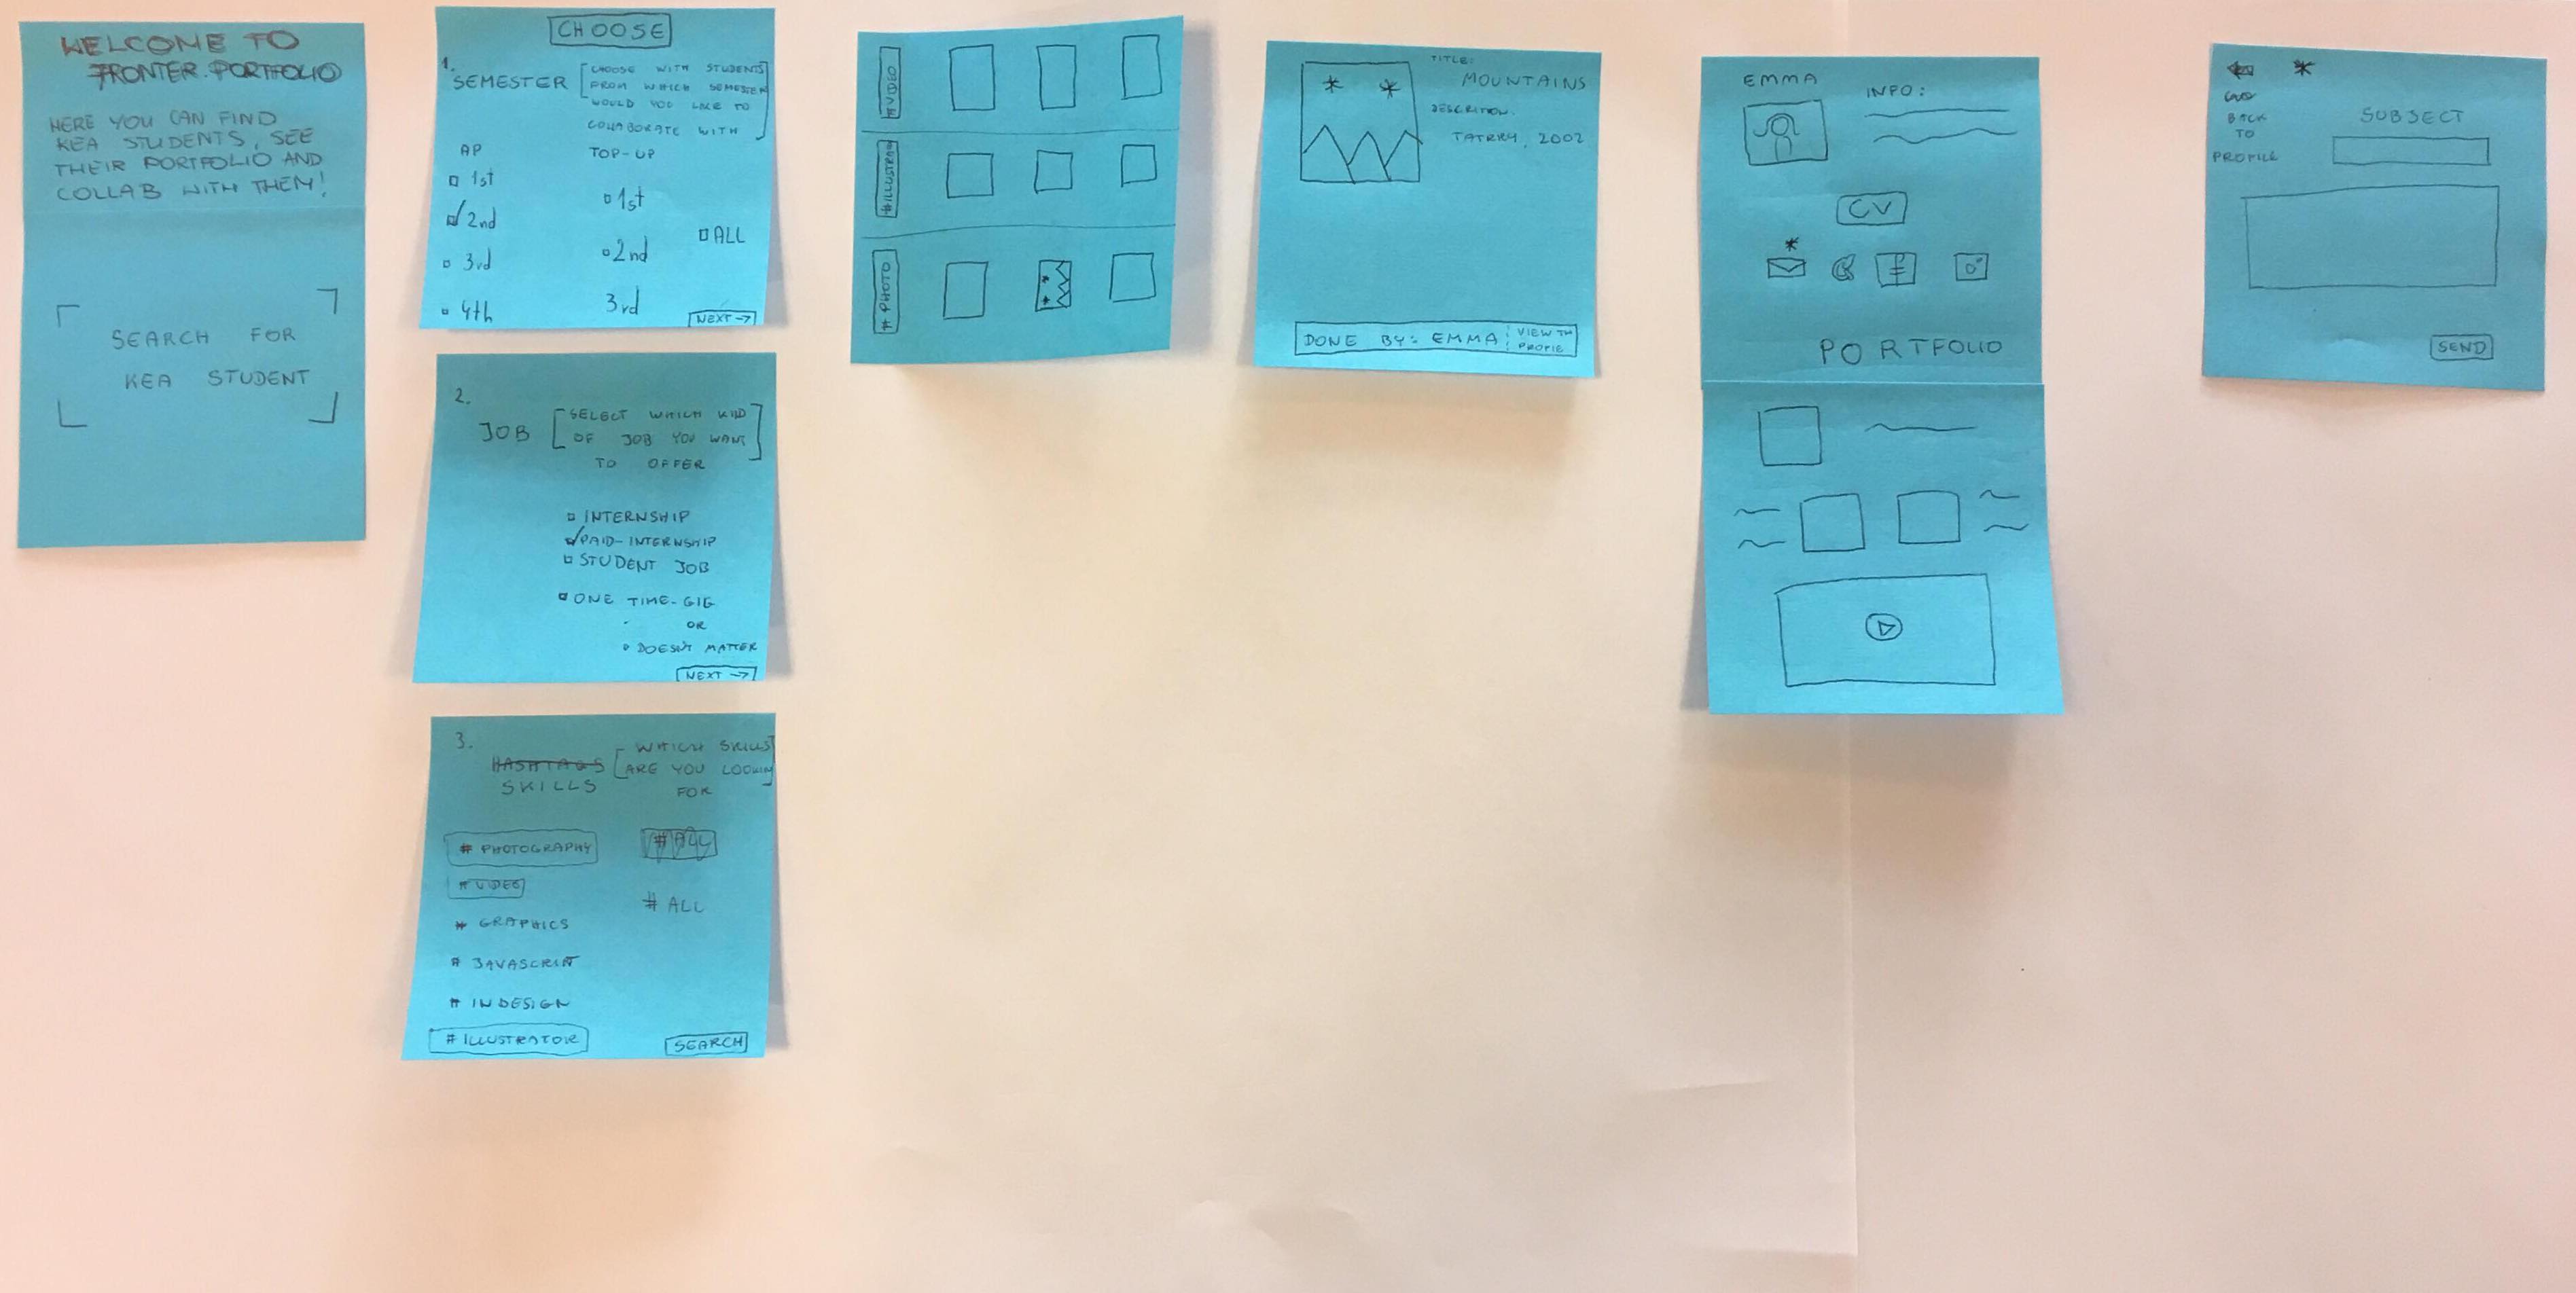 WELCOME TO
FRONTER.PORTFOLIO
HERE YOU CAN FIND
KEA STUDENTS, SEE
THEIR PORTFOLIO AND
COLLAB WITH THEM!
SEARCH FOR
KEA STUDENT
CHOOSE
1.
SEMESTER
CHOOSE WITH STUDENTS
FROM WHICH SEMESTER
WOULD YOU LIKE TO
COLLABORATE WITH
AP
1st
2nd
3rd
4th
TOP-UP
1st
2nd
3rd
ALL
NEXT →
2.
JOB
SELECT WHICH KIND
OF JOB YOU WANT
TO OFFER
INTERNSHIP
PAID-INTERNSHIP
STUDENT JOB
ONE TIME-GIG
OR
DOESN'T MATTER
NEXT →
3.
HASHTAGS
SKILLS
WHICH SKILLS
ARE YOU LOOKING
FOR
# PHOTOGRAPHY
# VIDEO
# GRAPHICS
# JAVASCRIPT
# INDESIGN
# ILLUSTRATOR
# ALL
# ALL
SEARCH
#VIDEO
#ILLUSTRA
# PHOTO
TITLE:
MOUNTAINS
DESCRITION.
TATRRY, 2002
DONE BY: EMMA
VIEW TH
PROFIE
EMMA
INFO:
CV
PORTFOLIO
←
BACK
TO
PROFILE
SUBSECT
SEND